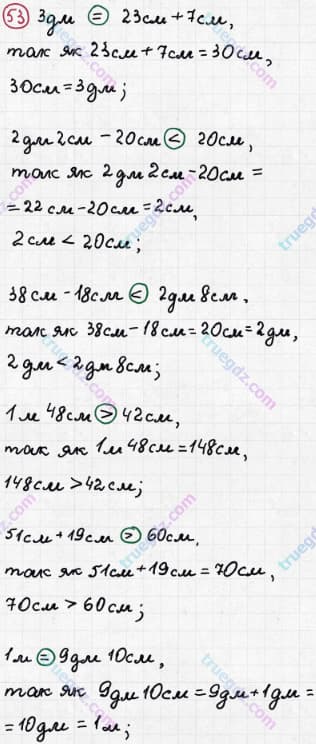 53 3дм = 23см + 7см,
так як 23см + 7см = 30см,
30см = 3дм;
2дм 2см - 20см < 20см,
так як 2дм 2см - 20см =
= 22см - 20см = 2см,
2см < 20см;
38см - 18см < 2дм 8см,
так як 38см - 18см = 20см = 2дм,
2дм < 2дм 8см;
1м 48см > 42см,
так як 1м 48см = 148см,
148см > 42см;
51см + 19см > 60см,
так як 51см + 19см = 70см,
70см > 60см;
1м = 9дм 10см,
так як 9дм 10см = 9дм + 1дм =
= 10дм = 1м;
truegdz.com